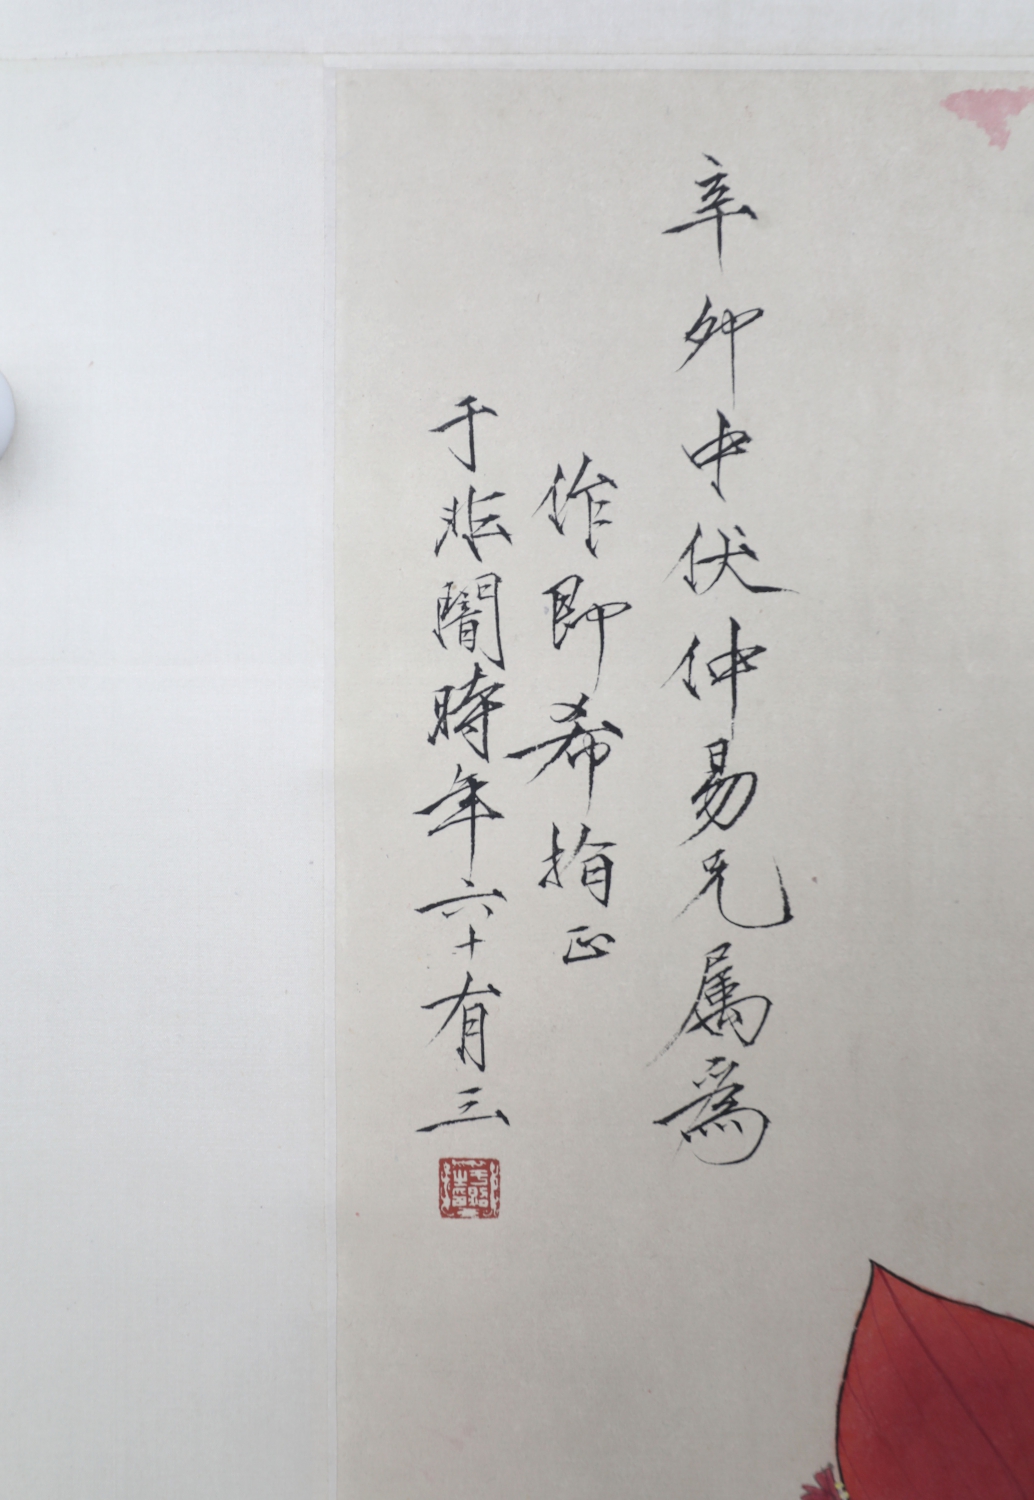 辛卯中伏仲易兄属為
作即希指正
于非闇時年六十有三